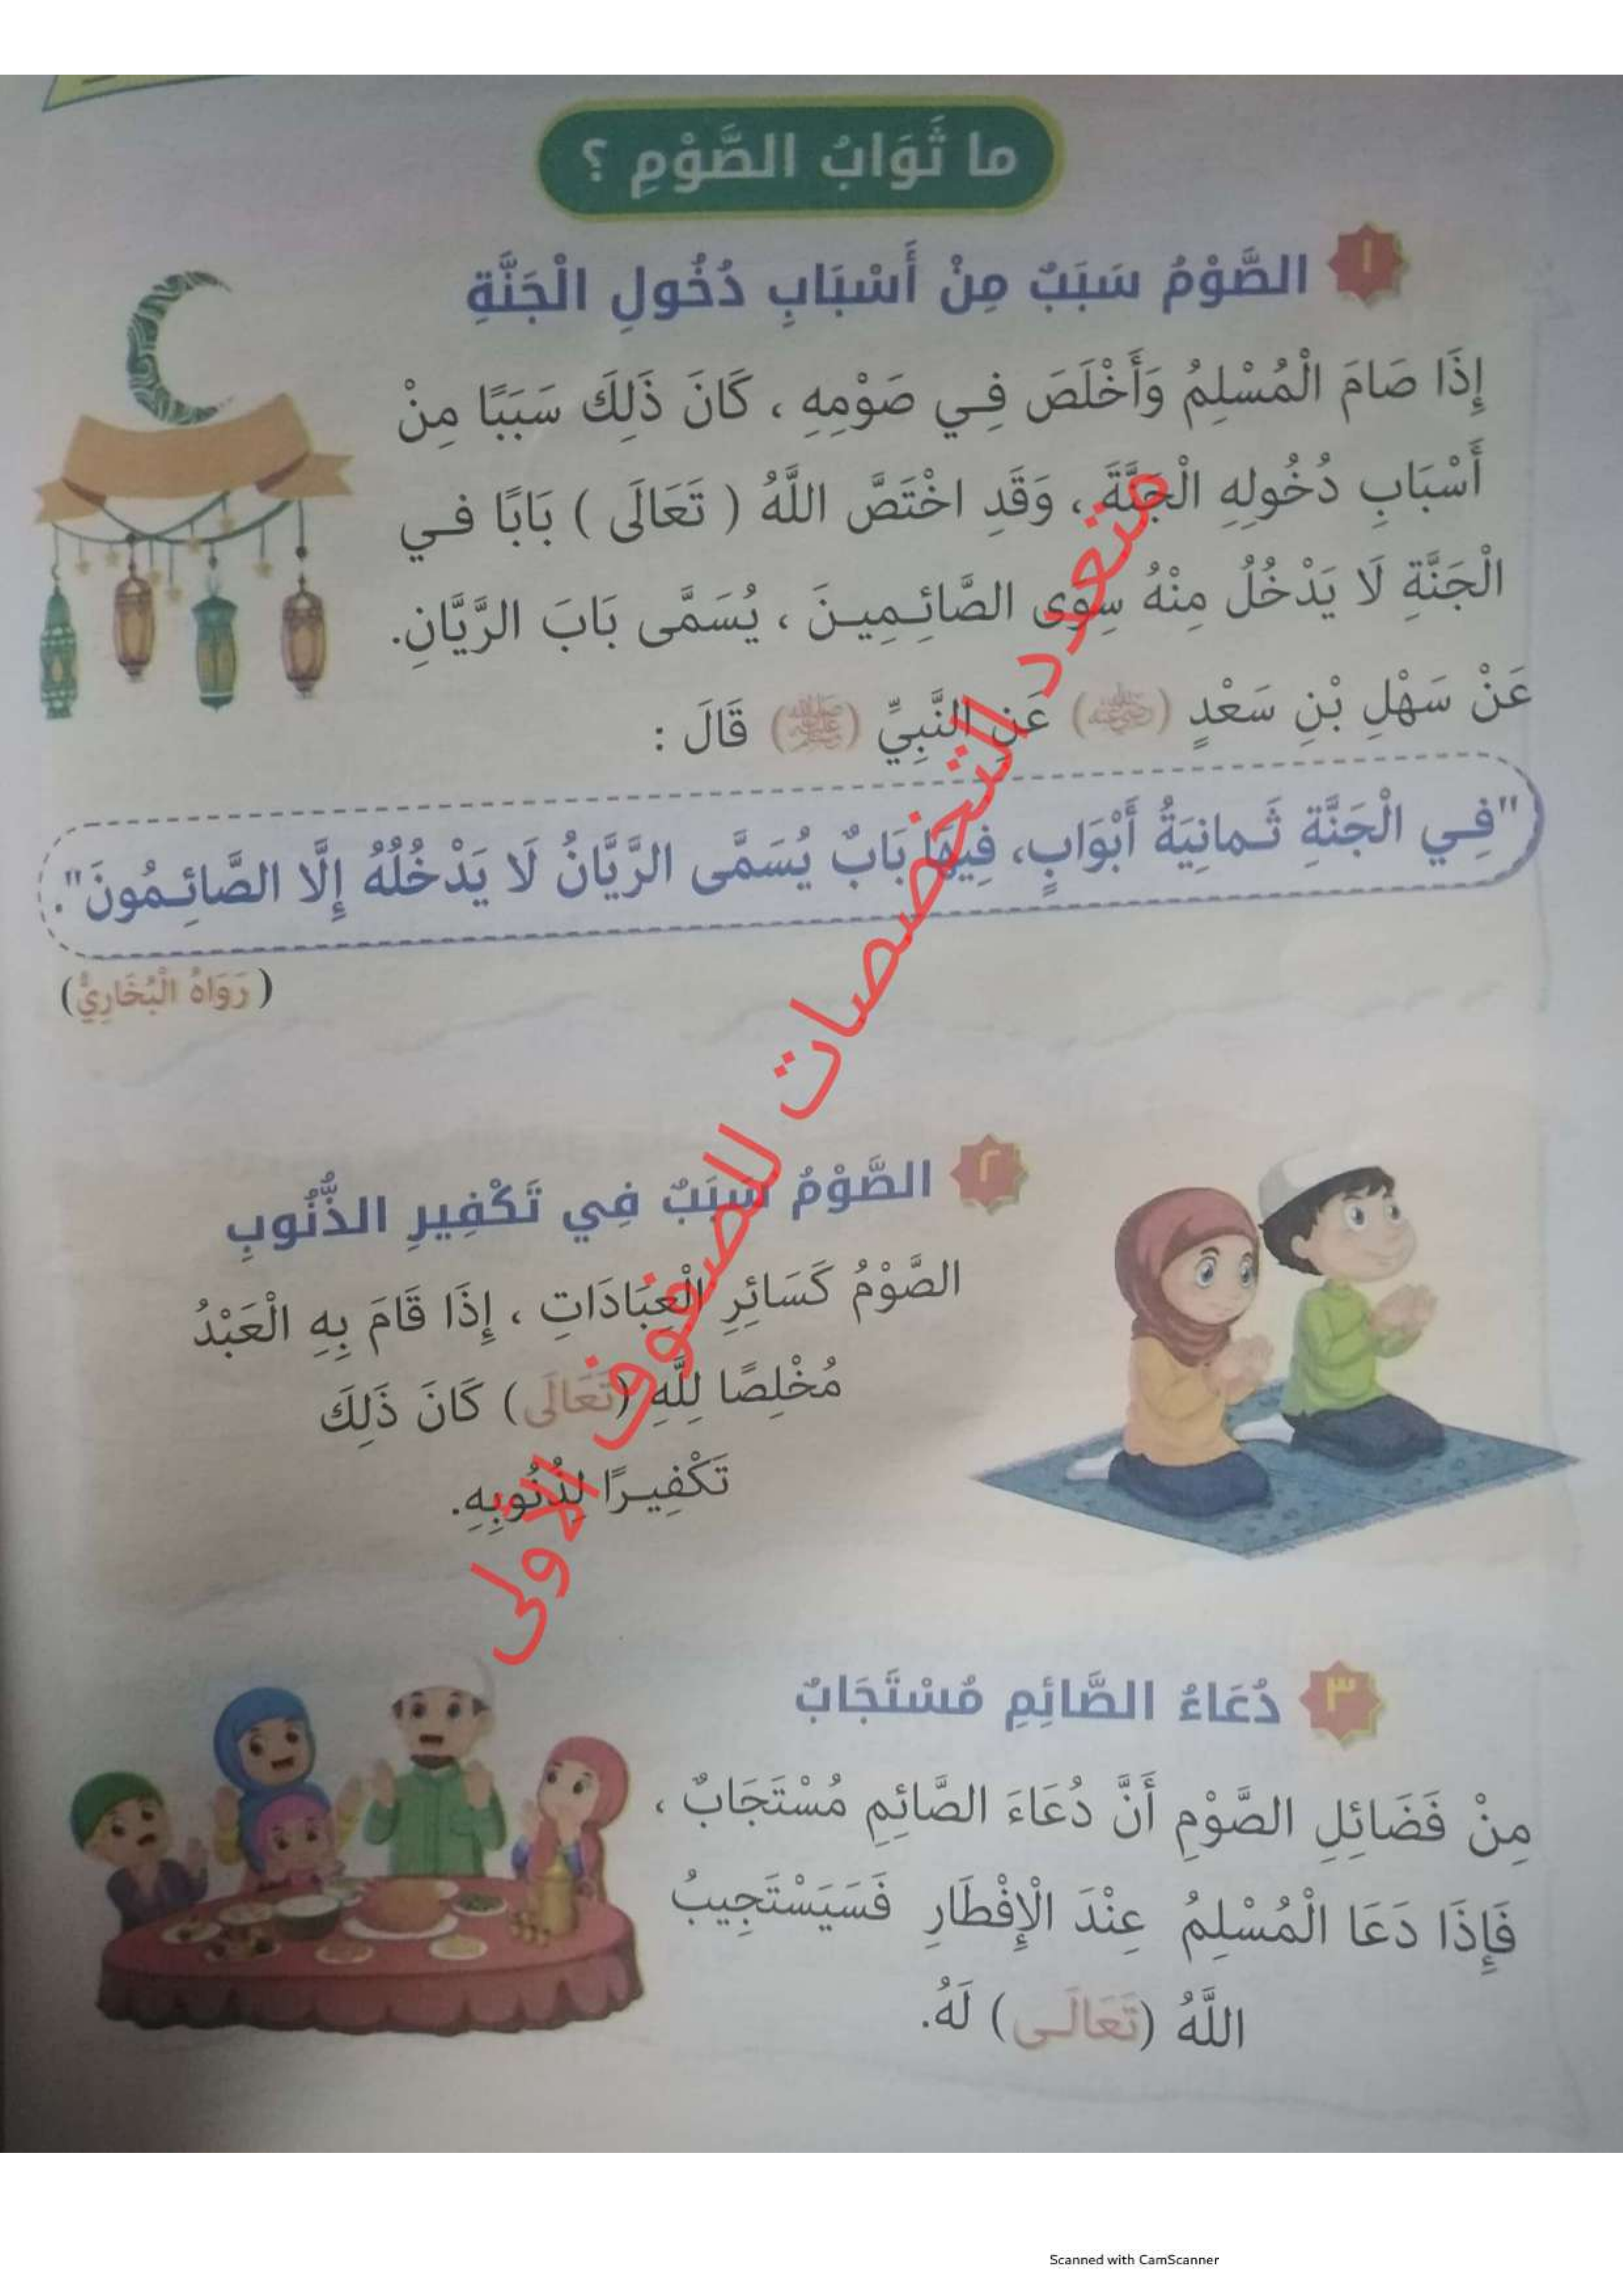 ما ثَوَابُ الصَّوْمِ ؟
١ الصَّوْمُ سَبَبٌ مِنْ أَسْبَابِ دُخُولِ الْجَنَّةِ
إِذَا صَامَ الْمُسْلِمُ وَأَخْلَصَ فِي صَوْمِهِ ، كَانَ ذَلِكَ سَبَبًا مِنْ
أَسْبَابِ دُخُولِهِ الْجَنَّةَ ، وَقَدِ اخْتَصَّ اللَّهُ ( تَعَالَى ) بَابًا في
الْجَنَّةِ لَا يَدْخُلُ مِنْهُ سِوَى الصَّائِمِينَ ، يُسَمَّى بَابَ الرَّيَّانِ.
عَنْ سَهْلِ بْنِ سَعْدٍ (رضي الله عنه) عَنِ النَّبِيِّ (ﷺ) قَالَ :
"فِي الْجَنَّةِ ثَمانِيَةُ أَبْوَابٍ، فِيهَا بَابٌ يُسَمَّى الرَّيَّانُ لَا يَدْخُلُهُ إِلَّا الصَّائِمُونَ".
(رَوَاهُ الْبُخَارِيُّ)
٢ الصَّوْمُ سَبَبٌ فِي تَكْفِيرِ الذُّنُوبِ
الصَّوْمُ كَسَائِرِ الْعِبَادَاتِ ، إِذَا قَامَ بِهِ الْعَبْدُ
مُخْلِصًا لِلَّهِ (تَعَالَى) كَانَ ذَلِكَ
تَكْفِيرًا لِذُنُوبِهِ.
٣ دُعَاءُ الصَّائِمِ مُسْتَجَابٌ
مِنْ فَضَائِلِ الصَّوْمِ أَنَّ دُعَاءَ الصَّائِمِ مُسْتَجَابٌ ،
فَإِذَا دَعَا الْمُسْلِمُ عِنْدَ الْإِفْطَارِ فَسَيَسْتَجِيبُ
اللَّهُ (تَعَالَى) لَهُ.
متعدد التخصصات للصفوف الأولى
Scanned with CamScanner